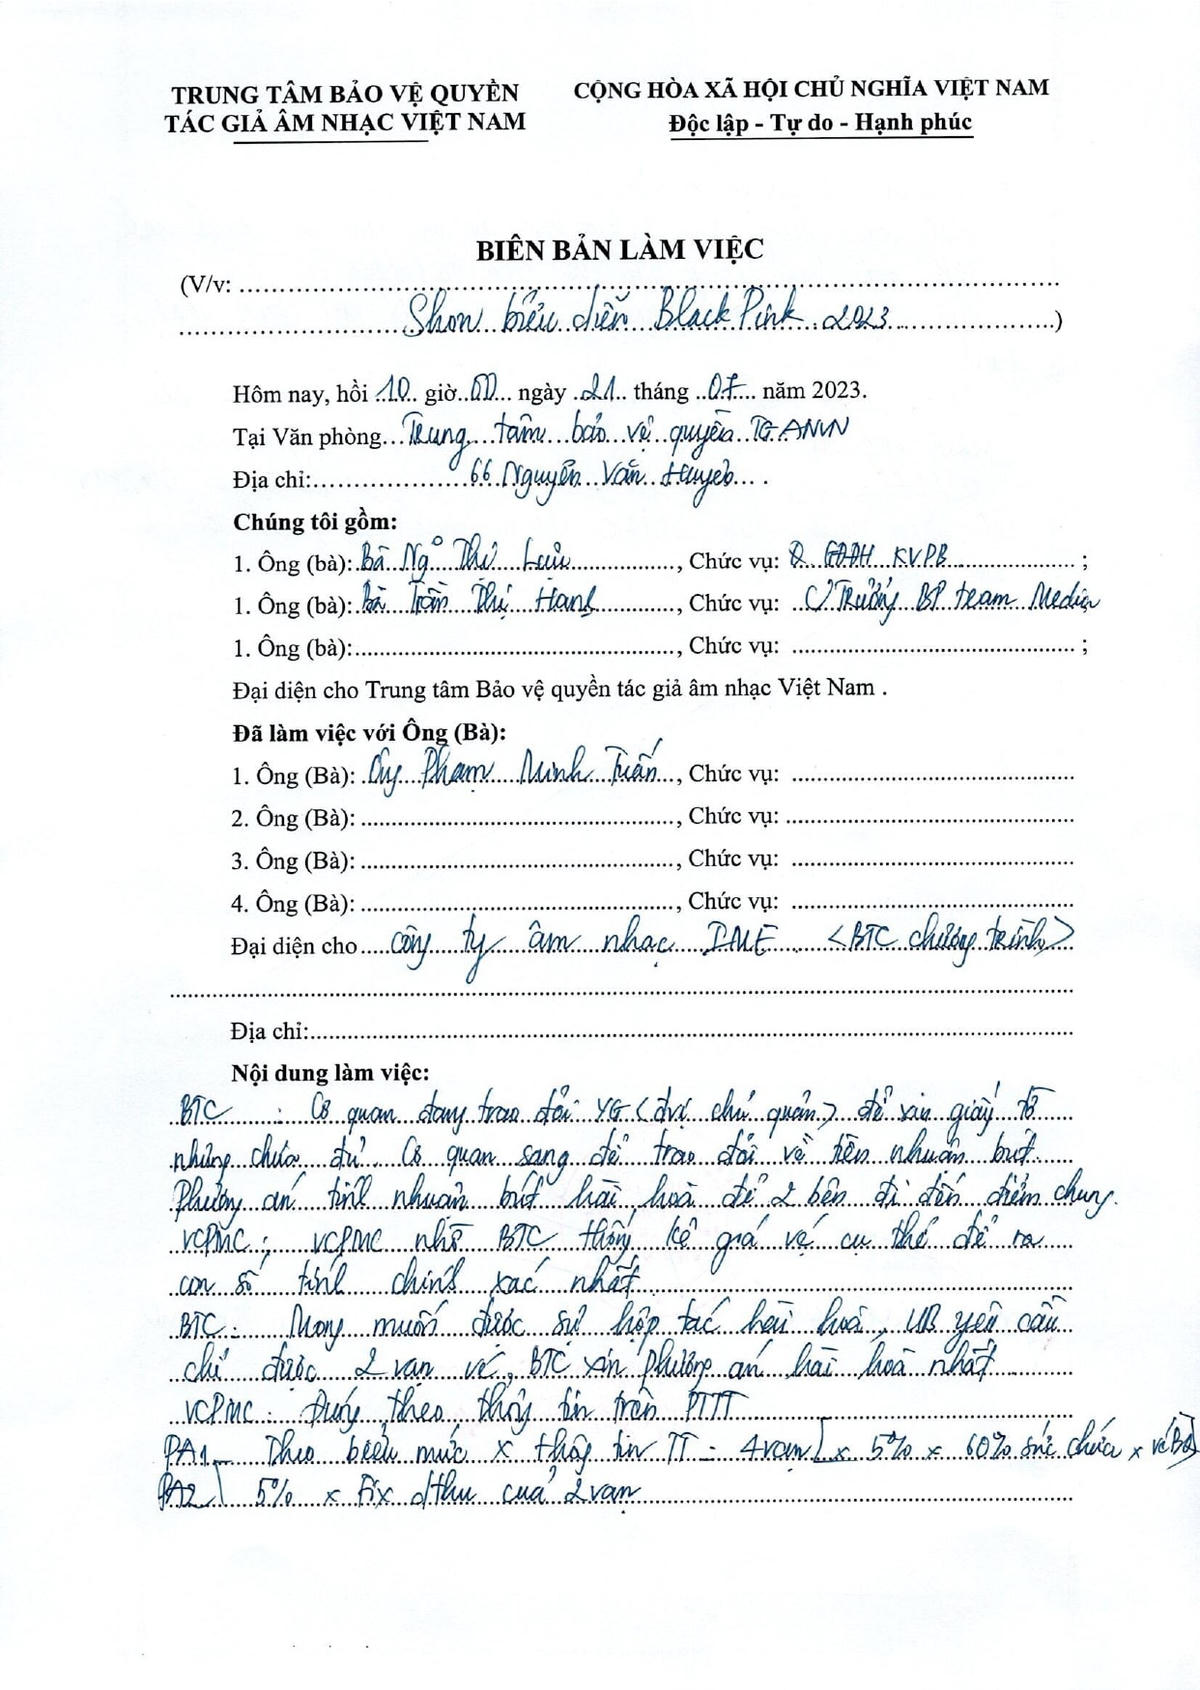 TRUNG TÂM BẢO VỆ QUYỀN
TÁC GIẢ ÂM NHẠC VIỆT NAM
CỘNG HÒA XÃ HỘI CHỦ NGHĨA VIỆT NAM
Độc lập - Tự do - Hạnh phúc
BIÊN BẢN LÀM VIỆC
(V/v:
Show biểu diễn BlackPink 2023)
Hôm nay, hồi 10 giờ 00 ngày 21 tháng 07 năm 2023.
Tại Văn phòng Trung tâm bảo vệ quyền TG ANVN
Địa chỉ: 66 Nguyễn Văn Huyên.
Chúng tôi gồm:
1. Ông (bà): Bà Ngô Thị, Chức vụ: Q. GĐĐH KVPB;
1. Ông (bà): Bà Trần Thị Hạnh, Chức vụ: Trưởng BP team Media
1. Ông (bà):, Chức vụ: ;
Đại diện cho Trung tâm Bảo vệ quyền tác giả âm nhạc Việt Nam .
Đã làm việc với Ông (Bà):
1. Ông (Bà): Ông Phạm Minh Tuấn, Chức vụ:
2. Ông (Bà):, Chức vụ:
3. Ông (Bà):, Chức vụ:
4. Ông (Bà):, Chức vụ:
Đại diện cho công ty âm nhạc IME <BTC chương trình>
Địa chỉ:
Nội dung làm việc:
BTC : Cơ quan đang trao đổi YG <đvị chủ quản> để xin giấy tờ
nhưng chưa đủ. Cơ quan sang để trao đổi về tiền nhuận bút
Phương án tính nhuận bút hài hoà để 2 bên đi đến điểm chung.
VCPMC: VCPMC nhờ BTC thống kê giá vé cụ thể để ra
con số tính chính xác nhất
BTC: Mong muốn được sự hợp tác hài hoà, UB yêu cầu
chỉ được 2 vạn vé, BTC xin phương án hài hoà nhất
VCPMC: Đúng theo thông tin trên PTTT
PA1 Theo biểu mức x thông tin TT = 4 vạn x 5% x 60% sức chứa x véBQ
PA2 5% x Fix dthu của 2 vạn